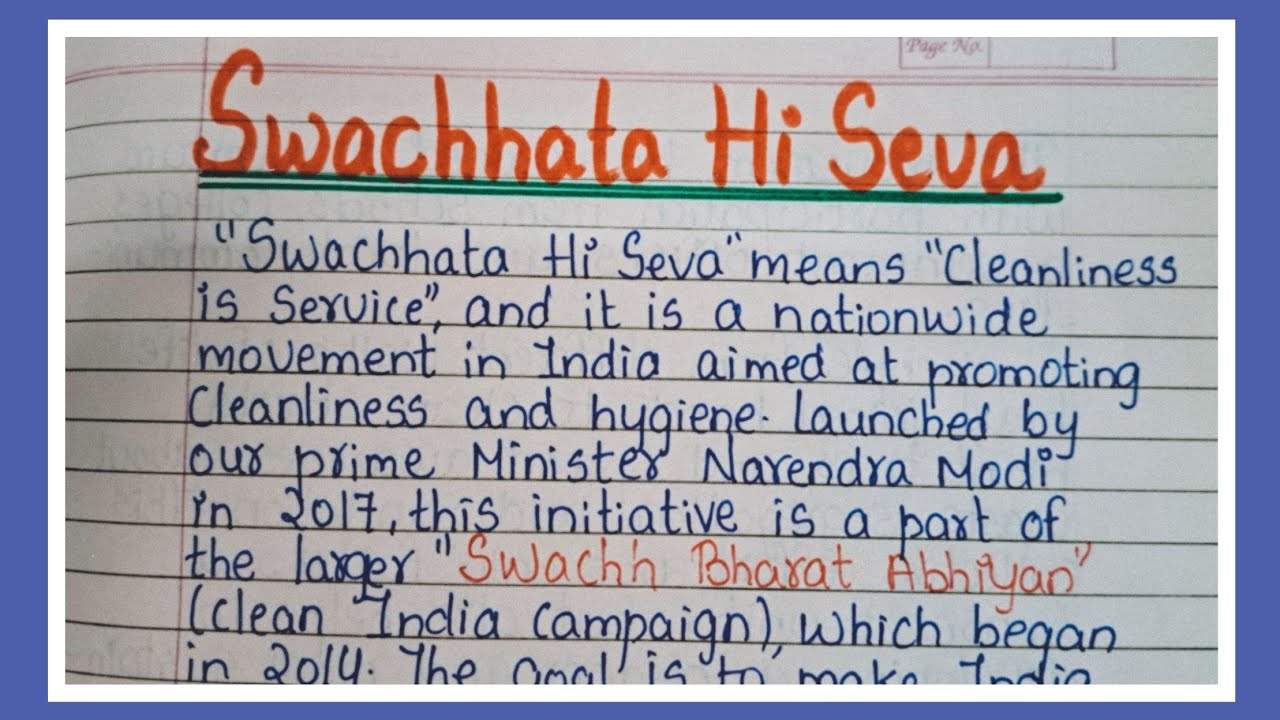 Page No.
Swachhata Hi Seva
"Swachhata Hi Seva" means "Cleanliness
is Service", and it is a nationwide
movement in India aimed at promoting
Cleanliness and hygiene. Launched by
our prime Minister Narendra Modi
in 2017, this initiative is a part of
the larger "Swachh Bharat Abhiyan"
(Clean India Campaign), which began
in 2014. The Goal is to make India